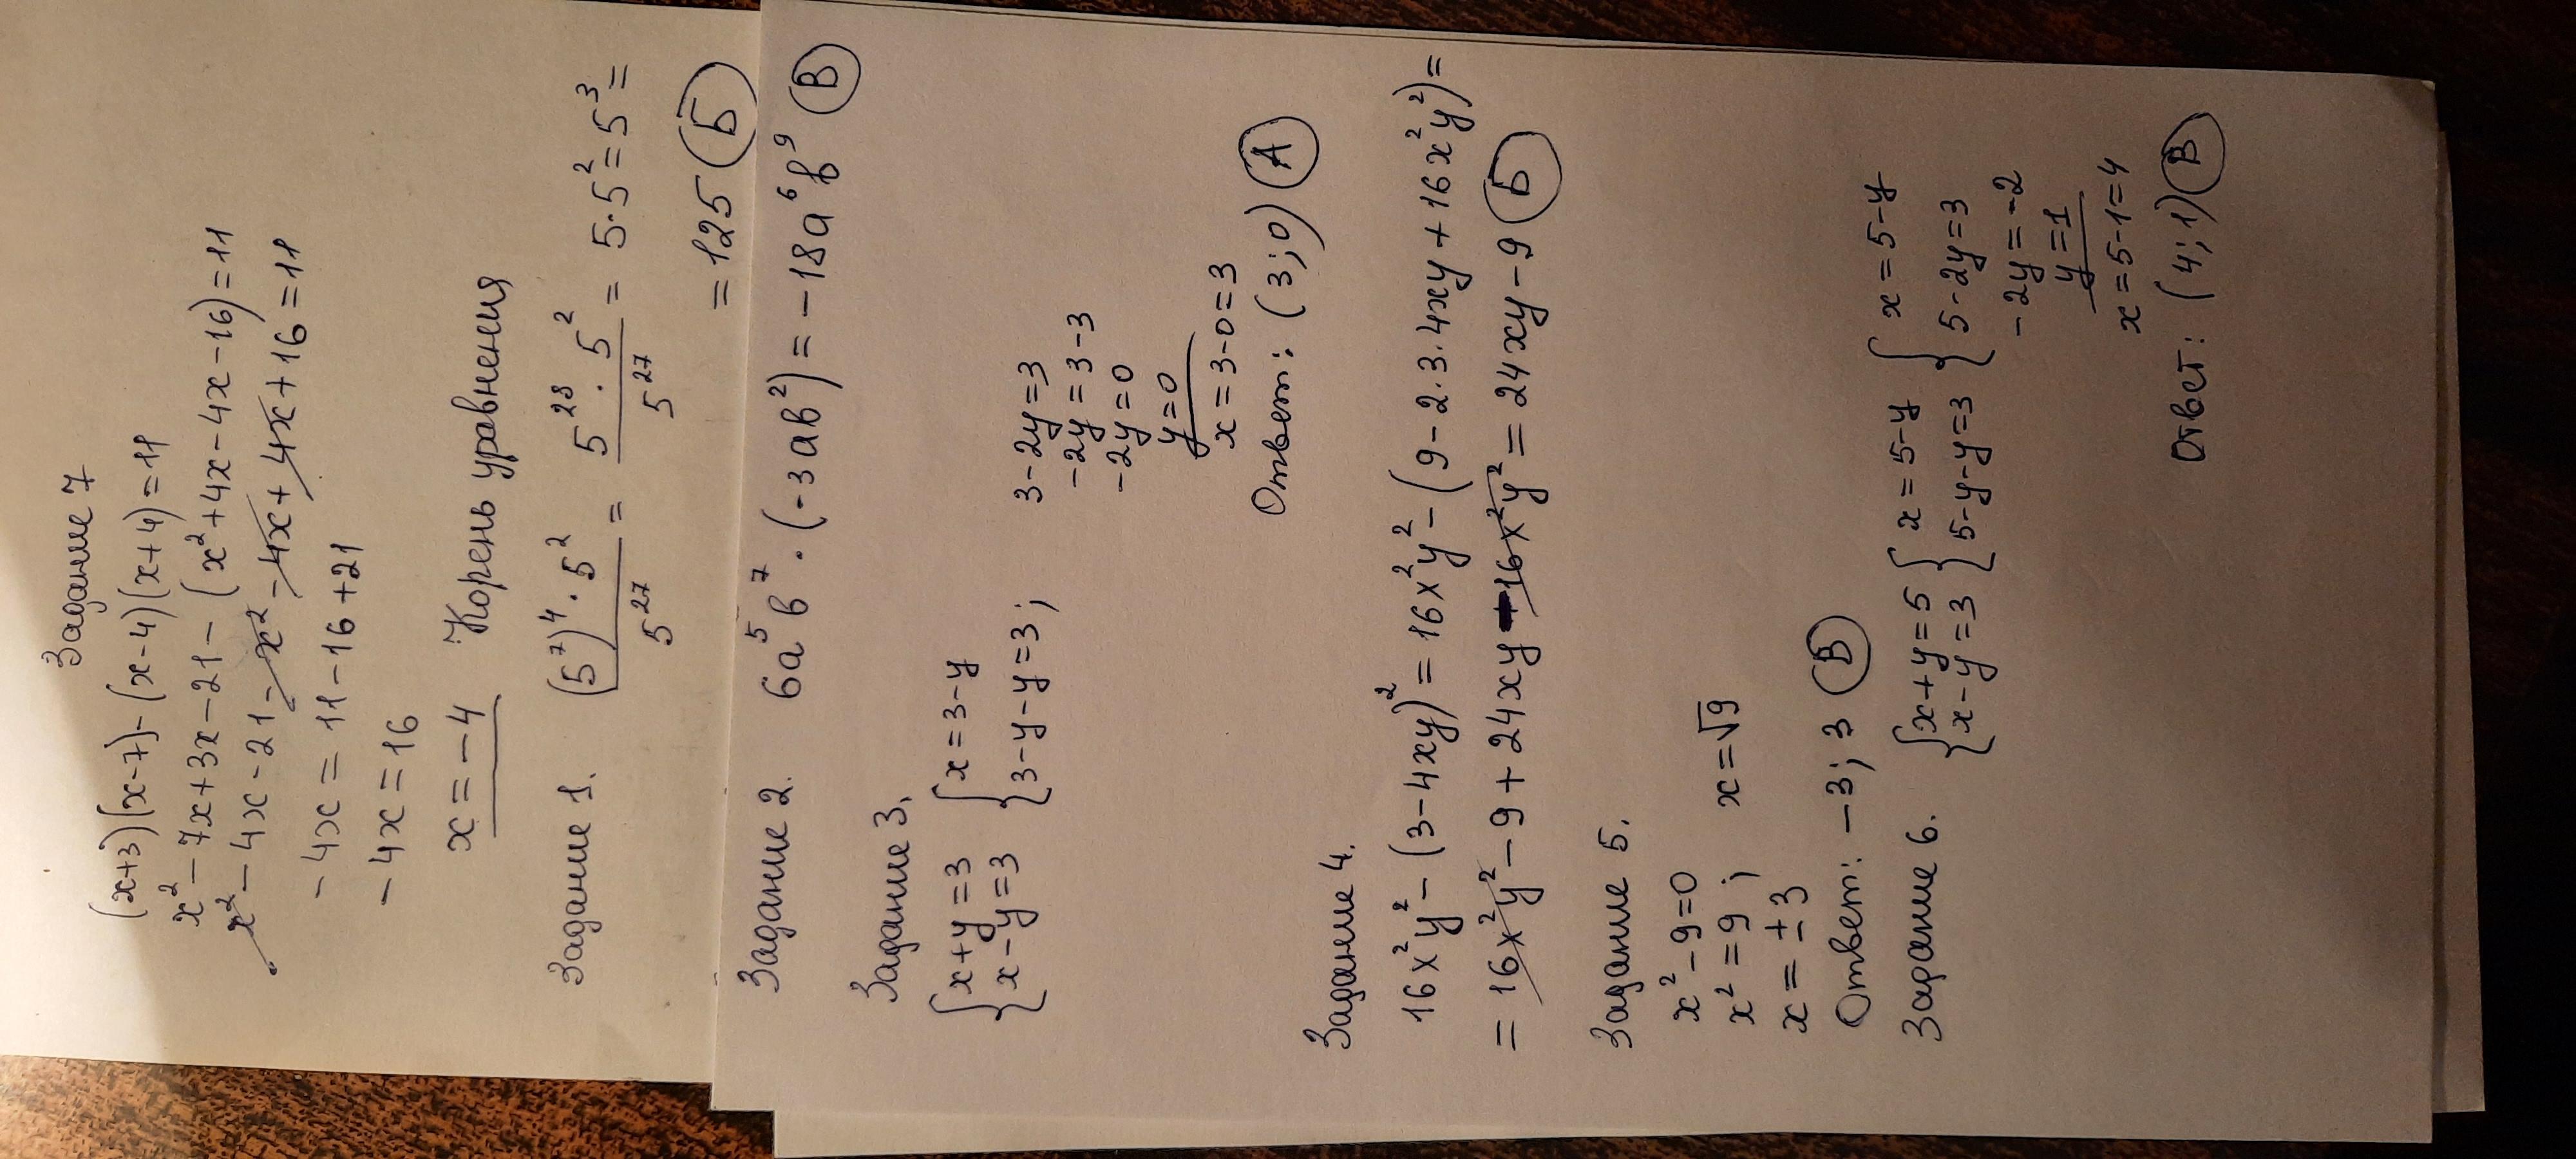 Задание 7
(x+3)(x-7)-(x-4)(x+4)=11
x²-7x+3x-21-(x²+4x-4x-16)=11
x²-4x-21-x²-4x+4x+16=11
-4x=11-16+21
-4x=16
x=-4 Корень уравнения
Задание 1. (5⁷)⁴·5²/5²⁷ = 5²⁸·5²/5²⁷ = 5·5²=5³=
=125 Б
Задание 2. 6a⁵b⁷·(-3ab²)=-18a⁶b⁹ В
Задание 3.
{x+y=3 {x=3-y
{x-y=3 {3-y-y=3;
3-2y=3
-2y=3-3
-2y=0
y=0
x=3-0=3
Ответ: (3;0) А
Задание 4.
16x²y²-(3-4xy)²=16x²y²-(9-2·3·4xy+16x²y²)=
=16x²y²-9+24xy-16x²y²=24xy-9 Б
Задание 5.
x²-9=0
x²=9; x=√9
x=±3
Ответ: -3; 3 В
Задание 6. {x+y=5 {x=5-y {x=5-y
{x-y=3 {5-y-y=3 {5-2y=3
-2y=-2
y=1
x=5-1=4
Ответ: (4;1) В